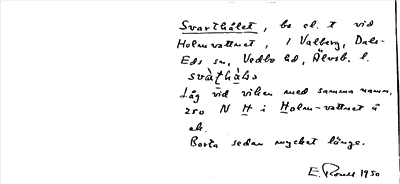 Svarthålet, bs el. t vid
Holmvattnet, i Valberg, Dals-
Eds sn, Vedbo hd, Älvsb. l.
svàt̠hàɫə
Låg vid viken med samma namn,
250 N H i Holm-vattnet å
ek.
Borta sedan mycket länge.
E. 1950